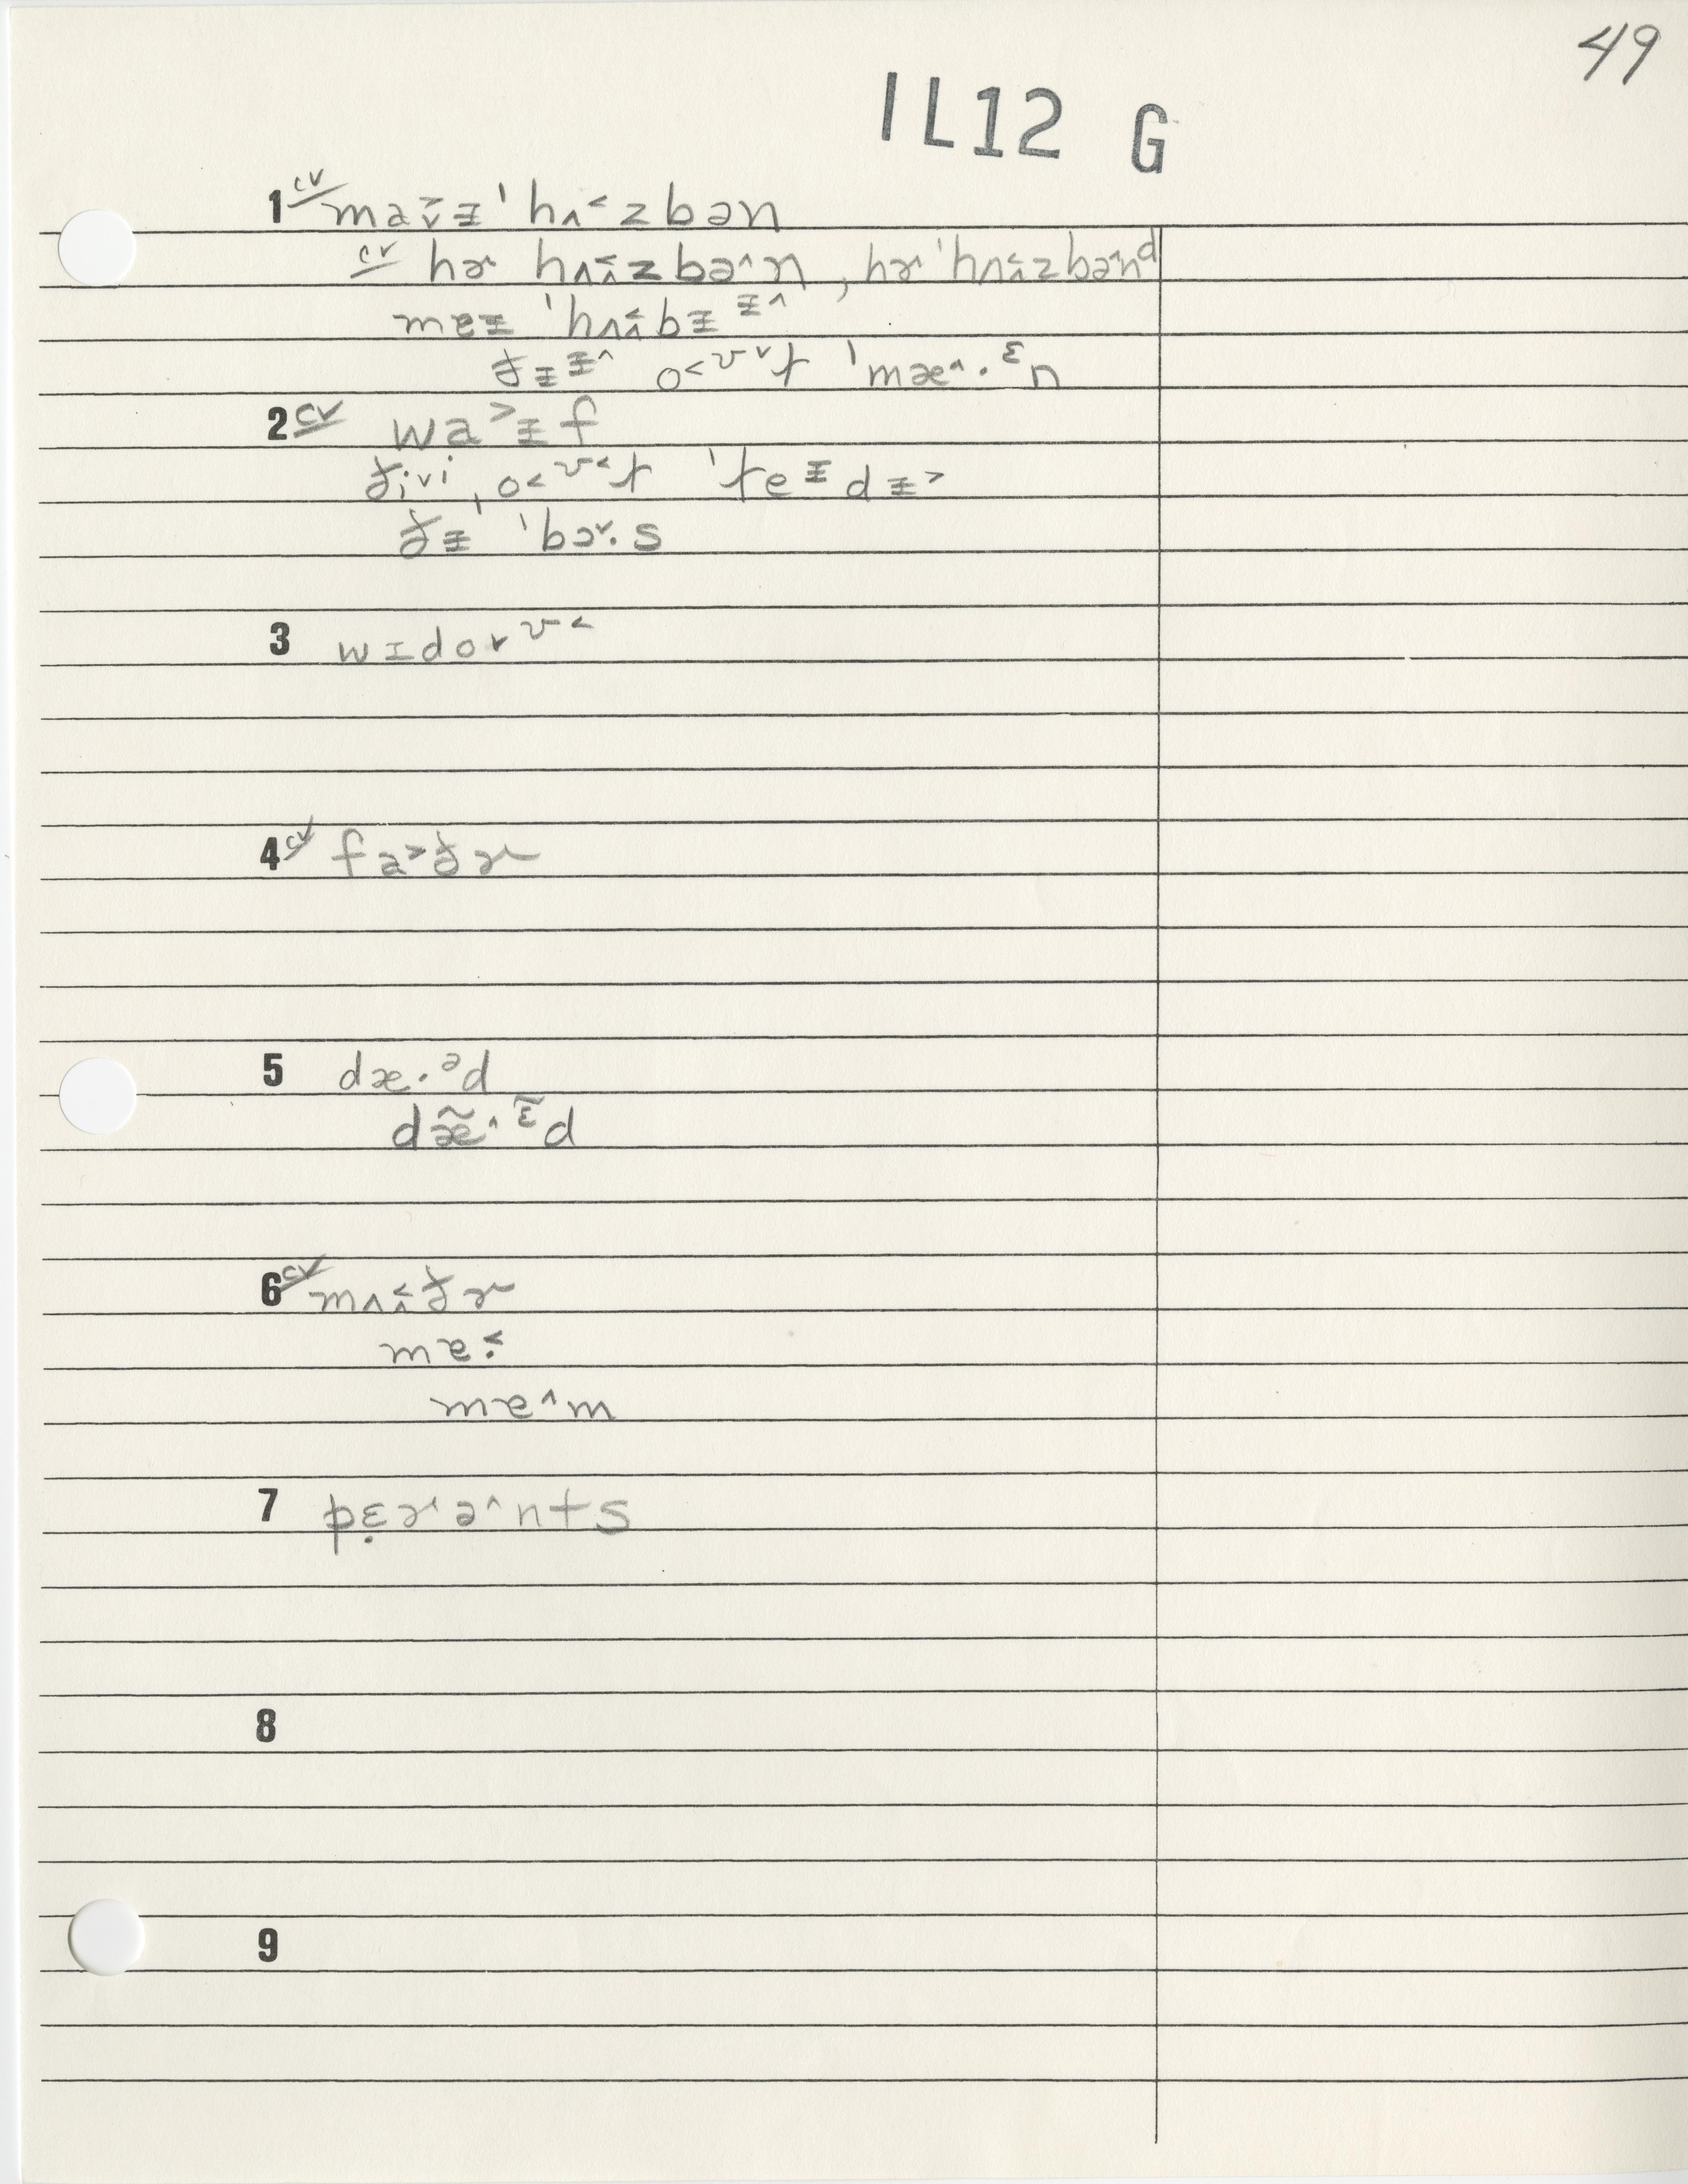 49
IL12 G
1 cv maˇ˃ᵻ ˈhʌ˂zbən
cv hɚ hʌ˄˂zbə˄n, hɚ ˈhʌ˄˂zbə˄nᵈ
mɐᵻ ˈhʌ˄˂bᵻᵻ˄
ðᵻᵻ˄ o˂ʊ˅t ˈmæ˄·ᵋn
2 cv wa˃ᵻf
ði˅i, o˂ʊ˂t ˈteᵻdᵻ˃
ðᵻ ˈbɔ˅·s
3 wɪdo˅ʊ˂
4 cv fa˃ðɚ
5 dæ·ᵊd
dæ̃˄·ɛ̃d
6 cv mʌ˄˂ðɚ
mɐ·˂
mɐ˄m
7 pɛ̣ɚ˄ə˄nts
8
9